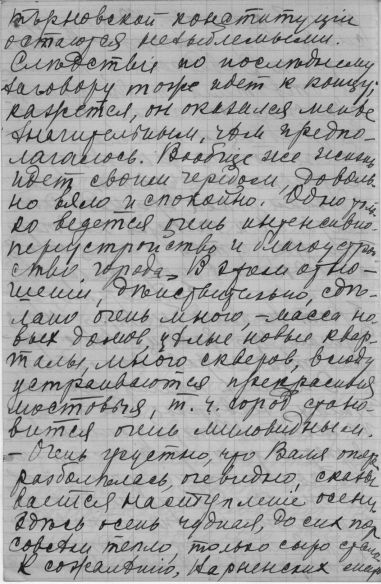 Тырновской конституціи
остаются незыблемыми.
Слѣдствіе по послѣднему
заговору тоже идет к концу;
кажется, он оказался менѣе
значительным, чѣм предпо-
лагалось. Вообще же жизнь
идет своим чередом, доволь-
но вяло и спокойно. Одно толь-
ко ведется очень интенсивно-
переустройство и благоустрой-
ство города. В этом отно-
шеніи, дѣйствительно, сдѣ-
лано очень много, – масса но-
вых домов, цѣлые новые квар-
талы, много скверов, всюду
устраиваются прекрасныя
мостовыя, т. ч. город стано-
вится очень миловидным.
– Очень грустно, что Валя опять
разболѣлась, очевидно, сказы-
вается наступленіе осени.
Здѣсь осень чудная, до сих пор
совсѣм тепло, только сыро стало.
К сожалѣнію, Варненских